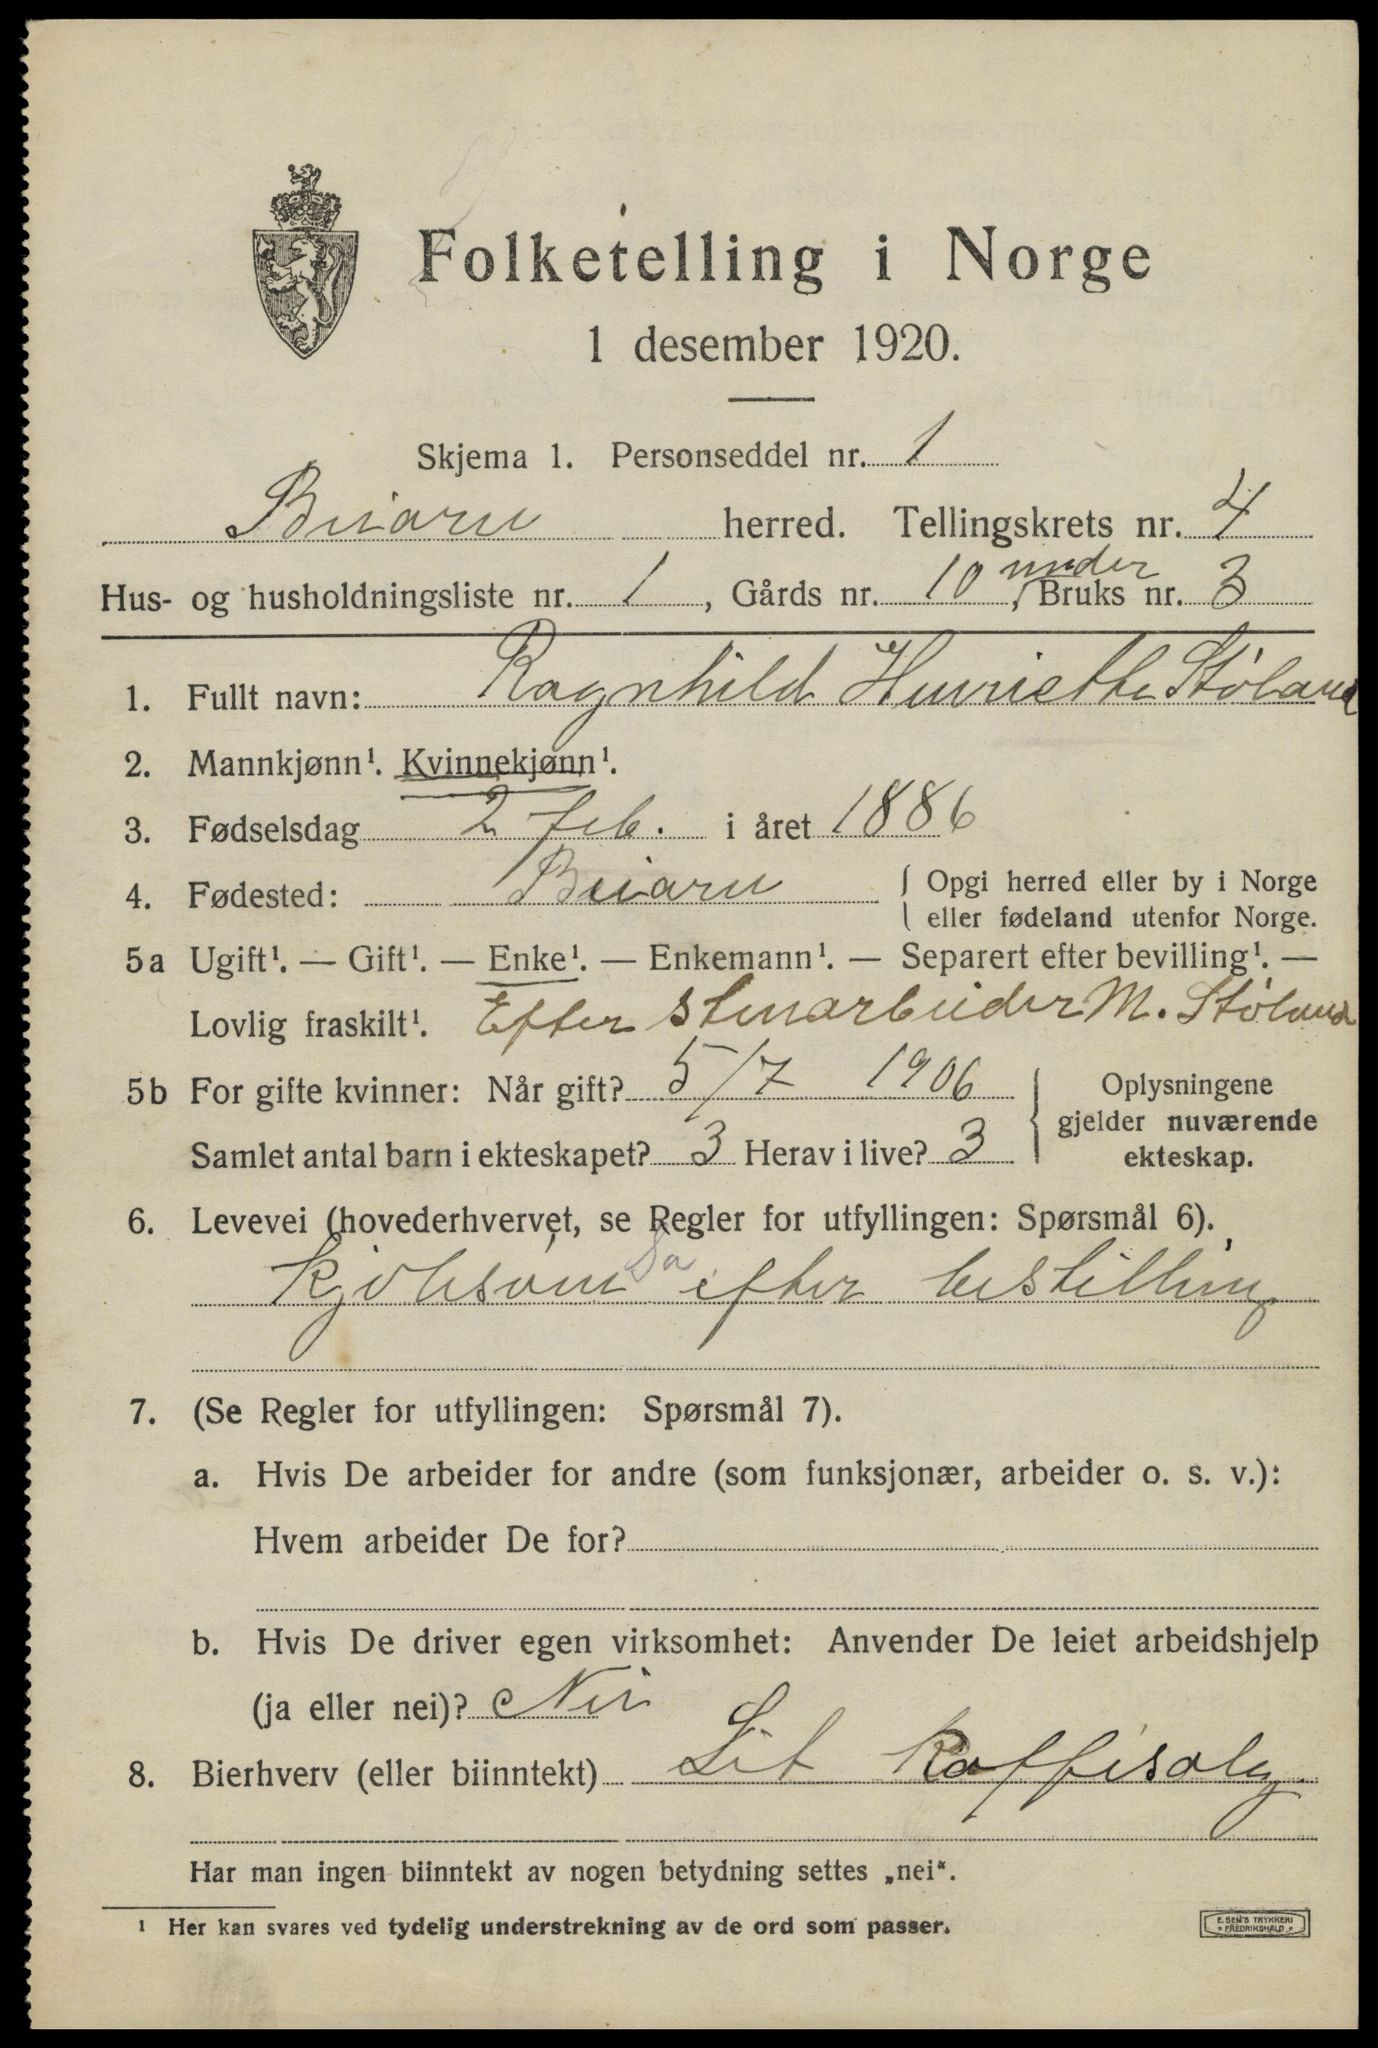 Folketelling i Norge
1 desember 1920.
Skjema 1. Personseddel nr. 1
Beiarn herred. Tellingskrets nr. 4
Hus- og husholdningsliste nr. 1, Gårds nr. 10, under Bruks nr. 3
1. Fullt navn: Ragnhild Henriette Støland
2. Mannkjønn¹. Kvinnekjønn¹.
3. Fødselsdag 2 feb. i året 1886
4. Fødested: Beiarn { Opgi herred eller by i Norge
eller fødeland utenfor Norge.
5a Ugift¹. — Gift¹. — Enke¹. — Enkemann¹. — Separert efter bevilling¹. —
Lovlig fraskilt¹. Efter stenarbeider M. Støland
5b For gifte kvinner: Når gift? 5/7 1906 { Oplysningene
gjelder nuværende
Samlet antal barn i ekteskapet? 3 Herav i live? 3 ekteskap.
6. Levevei (hovederhvervet, se Regler for utfyllingen: Spørsmål 6).
Kjolesøm Sa efter bestilling
7. (Se Regler for utfyllingen: Spørsmål 7).
a. Hvis De arbeider for andre (som funksjonær, arbeider o. s. v.):
Hvem arbeider De for?
b. Hvis De driver egen virksomhet: Anvender De leiet arbeidshjelp
(ja eller nei)? Nei
8. Bierhverv (eller biinntekt) Lit Kaffisalg
Har man ingen biinntekt av nogen betydning settes „nei“.
¹ Her kan svares ved tydelig understrekning av de ord som passer.
E. SEM'S TRYKKERI
FREDRIKSHALD